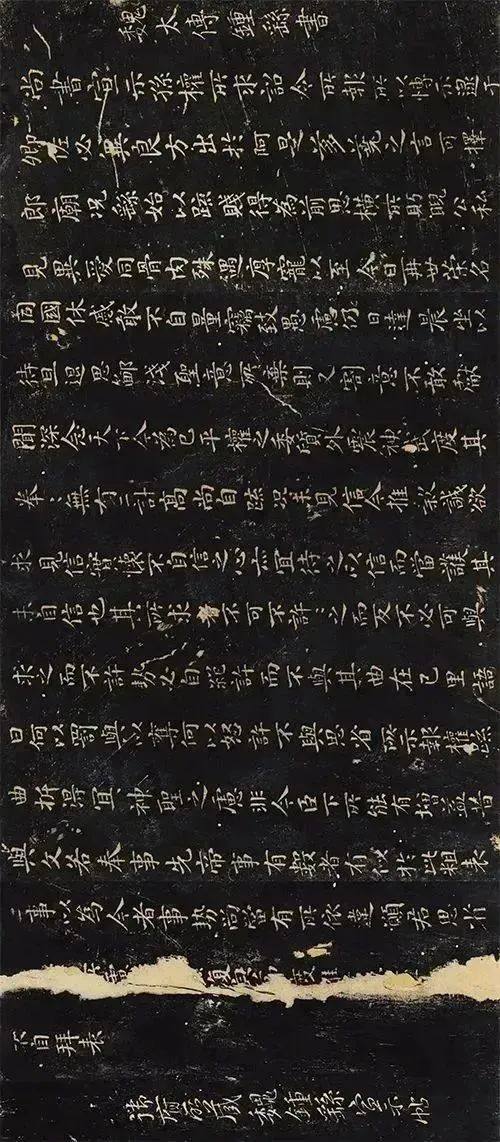 魏太傅鍾繇書
尚書宣示孫權所求詔令所報所以博示逮于
卿佐必冀良方出於阿是芻蕘之言可擇
郎廟況繇始以疏賤得為前恩橫所盻睨公私
見異愛同骨肉殊遇厚寵以至今日再世榮名
同國休慼敢不自量竊致愚慮仍日達晨坐以
待旦退思鄙淺聖意所棄則又割意不敢獻
聞深念天下今為已平權之委質外震神武度其
拳:無有二計高尚自疏況未見信今推款誠欲
求見信實懷不自信之心亦宜待之以信而當護其
未自信也其所求者不可不許:之而反不必可與
求之而不許勢必自絕許而不與其曲在己里語
曰何以罰與以奪何以怒許不與思省所示報權疏
曲折得宜:神聖之慮非今臣下所能有增益昔
與文若奉事先帝事有數者有似於此粗表
二事以為今者事勢尚當有所依違願君思省
不自拜表
府所藏魏鍾繇宣示帖